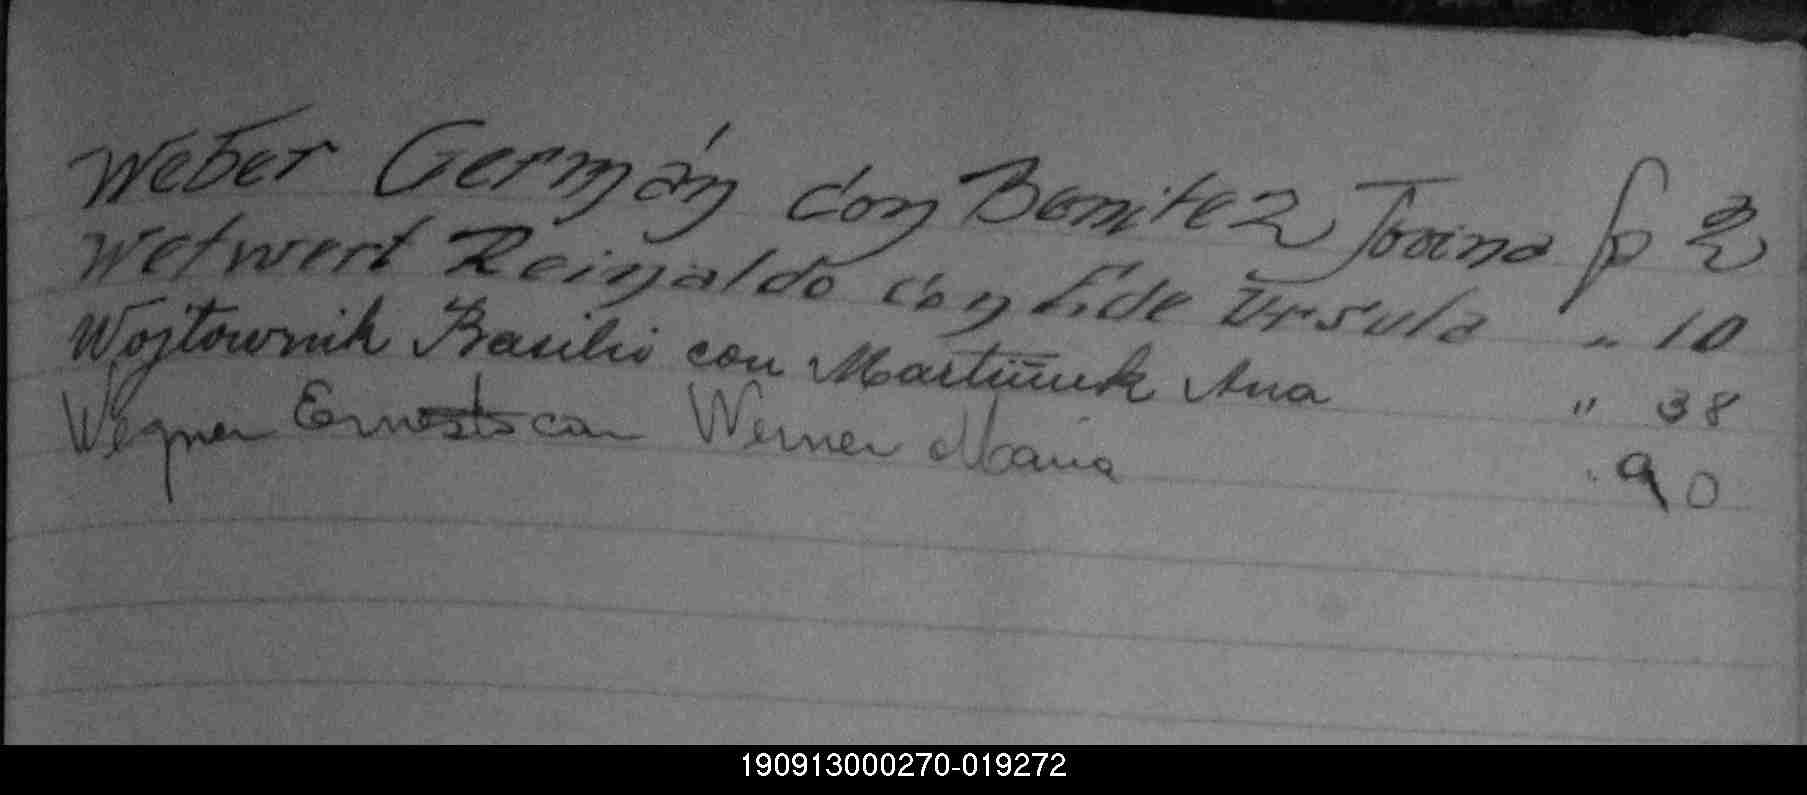 Weber Germán con Benitez Jovina fo 2
Wetwert Reinaldo con Lide Ursula " 10
Wojtownik Basilio con Martiniuk Ana " 38
Wegner Ernesto con Werner Maria " 90
190913000270-019272